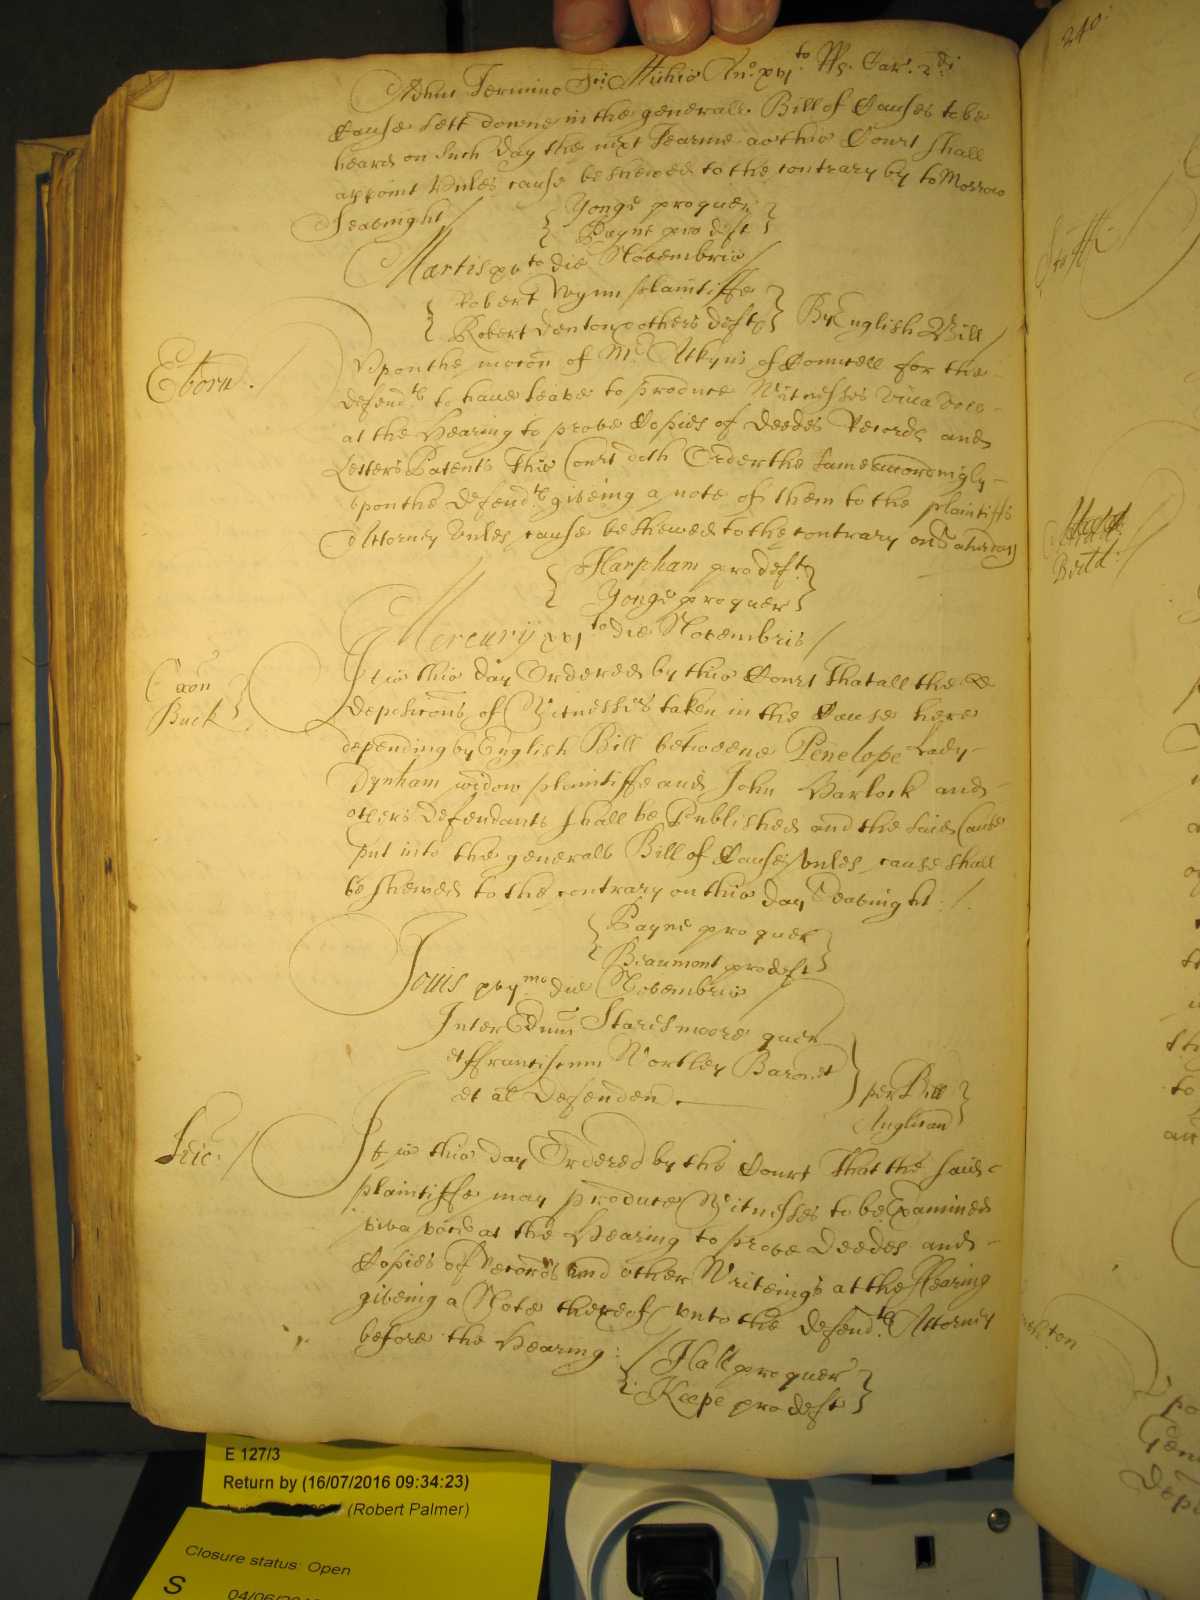 Adhuc Termino Sci Michis Ano xvjto Rs. Car. 2di
Cause sett downe in the generall Bill of Causes to be
heard on such day the next Tearme as this Court shall
appoint unles cause be shewed to the contrary by to Morrow
Seavnight /
Yonge pro quer
Payne pro deft
Martis xvto die Novembris /
Robert Wynn plaintiffe
Robert Denton & others defts
By English Bill /
Eborn.
Upon the mocon of Mr Atkyns of Councell for the
defendts to have leave to produce Witnesses viva voce
at the Hearing to prove Copies of Deedes Records and
Letters Patents This Court doth Order the same accordingly
upon the defendts giveing a note of them to the plaintiffs
Attorney unles cause be shewed to the contrary on Saturday
Harpham pro deft
Yonge pro quer
Mercurij xvjto die Novembris /
Oxon
Buck
It is this day Ordered by this Court That all the
depositions of Witnesses taken in the Cause here
depending by English Bill betweene Penelope Lady
Dynham widow plaintiffe and John Varlock and
others Defendants shall be Published and the said Cause
put into the generall Bill of Causes unles cause shall
be shewed to the contrary on this day Seavnight : /.
Payne pro quer
Beaumont pro deft
Jovis xvijmo die Novembris /
Inter Edmu Staresmoore quer
et ffranciscum Wortley Baronet
et al Defenden.
per Bill
Anglican
Leic. /
It is this day Ordered by this Court That the said
plaintiffe may produce Witnesses to be Examined
viva voce at the Hearing to prove Deedes and
Copies of Records and other Writeings at the Hearing
giveing a Note thereof unto the defendts Attorney
before the Hearing : /
Hall pro quer
Keepe pro deft
240.
E 127/3
Return by (16/07/2016 09:34:23)
(Robert Palmer)
Closure status: Open
S